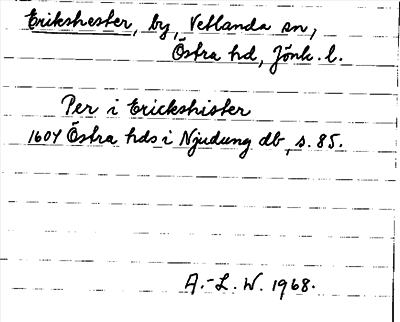 Erikshester, by, Vetlanda sn,
Östra hd, Jönk. l.
Per i Erickshister
1604 Östra hds i Njudung db, s. 85.
A.-L. W. 1968.